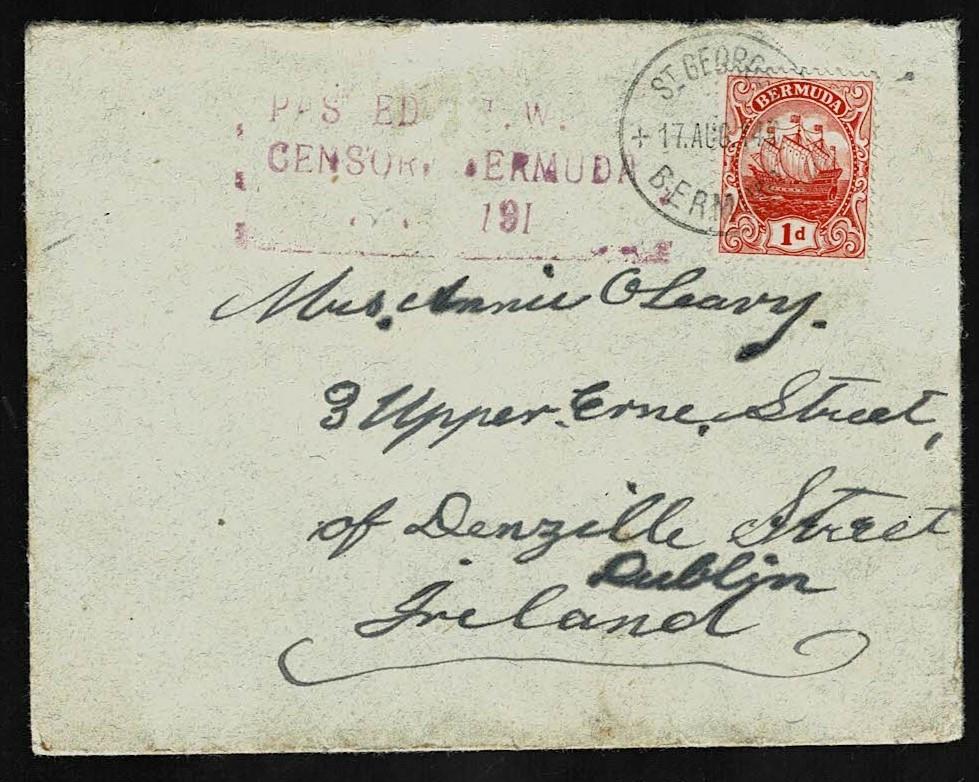 PASSED
CENSOR, BERMUDA
191
ST GEORGE
+ 17.AUG 14
BERM
BERMUDA
1d
Mrs. Annie O'Leary.
3 Upper Erne, Street,
of Denzille Street
Dublin
Ireland